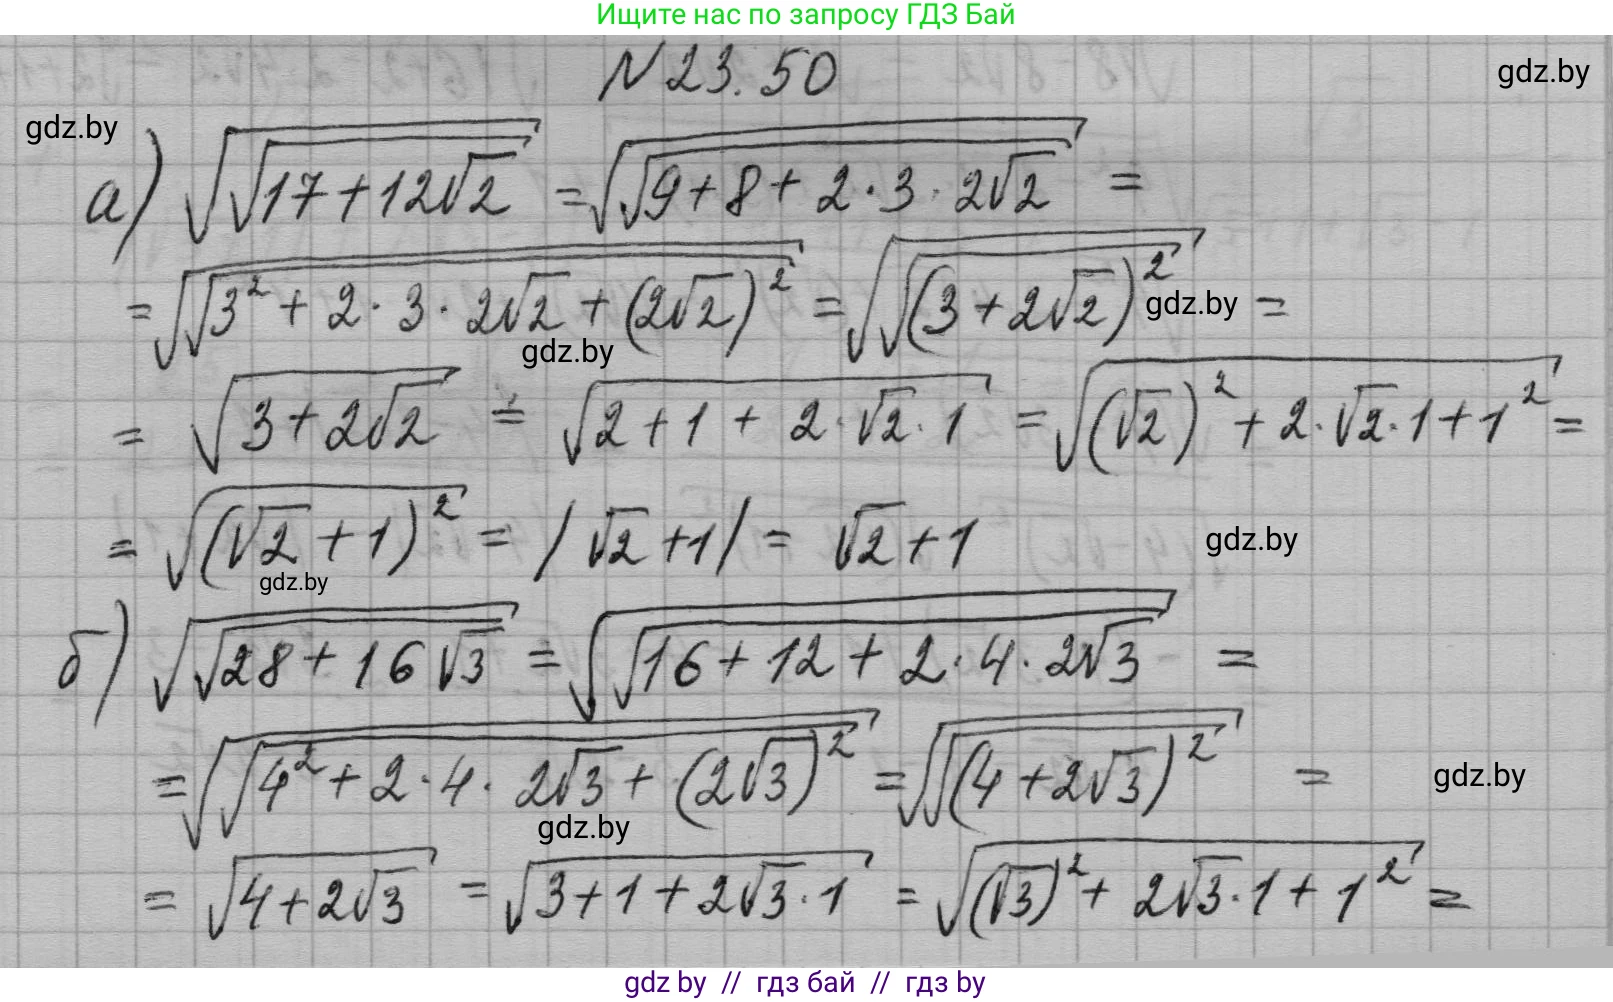 Ищите нас по запросу ГДЗ Бай
N 23.50
gdz.by
gdz.by
а) √√17+12√2 = √√9+8+2·3·2√2 =
= √√3²+2·3·2√2+(2√2)² = √√(3+2√2)² =
gdz.by
gdz.by
= √3+2√2 = √2+1+2·√2·1 = √(√2)²+2·√2·1+1² =
= √(√2+1)² = |√2+1| = √2+1
gdz.by
gdz.by
б) √√28+16√3 = √√16+12+2·4·2√3 =
= √√4²+2·4·2√3+(2√3)² = √√(4+2√3)² =
gdz.by
gdz.by
= √4+2√3 = √3+1+2√3·1 = √(√3)²+2√3·1+1² =
gdz by // гдз бай // гдз by